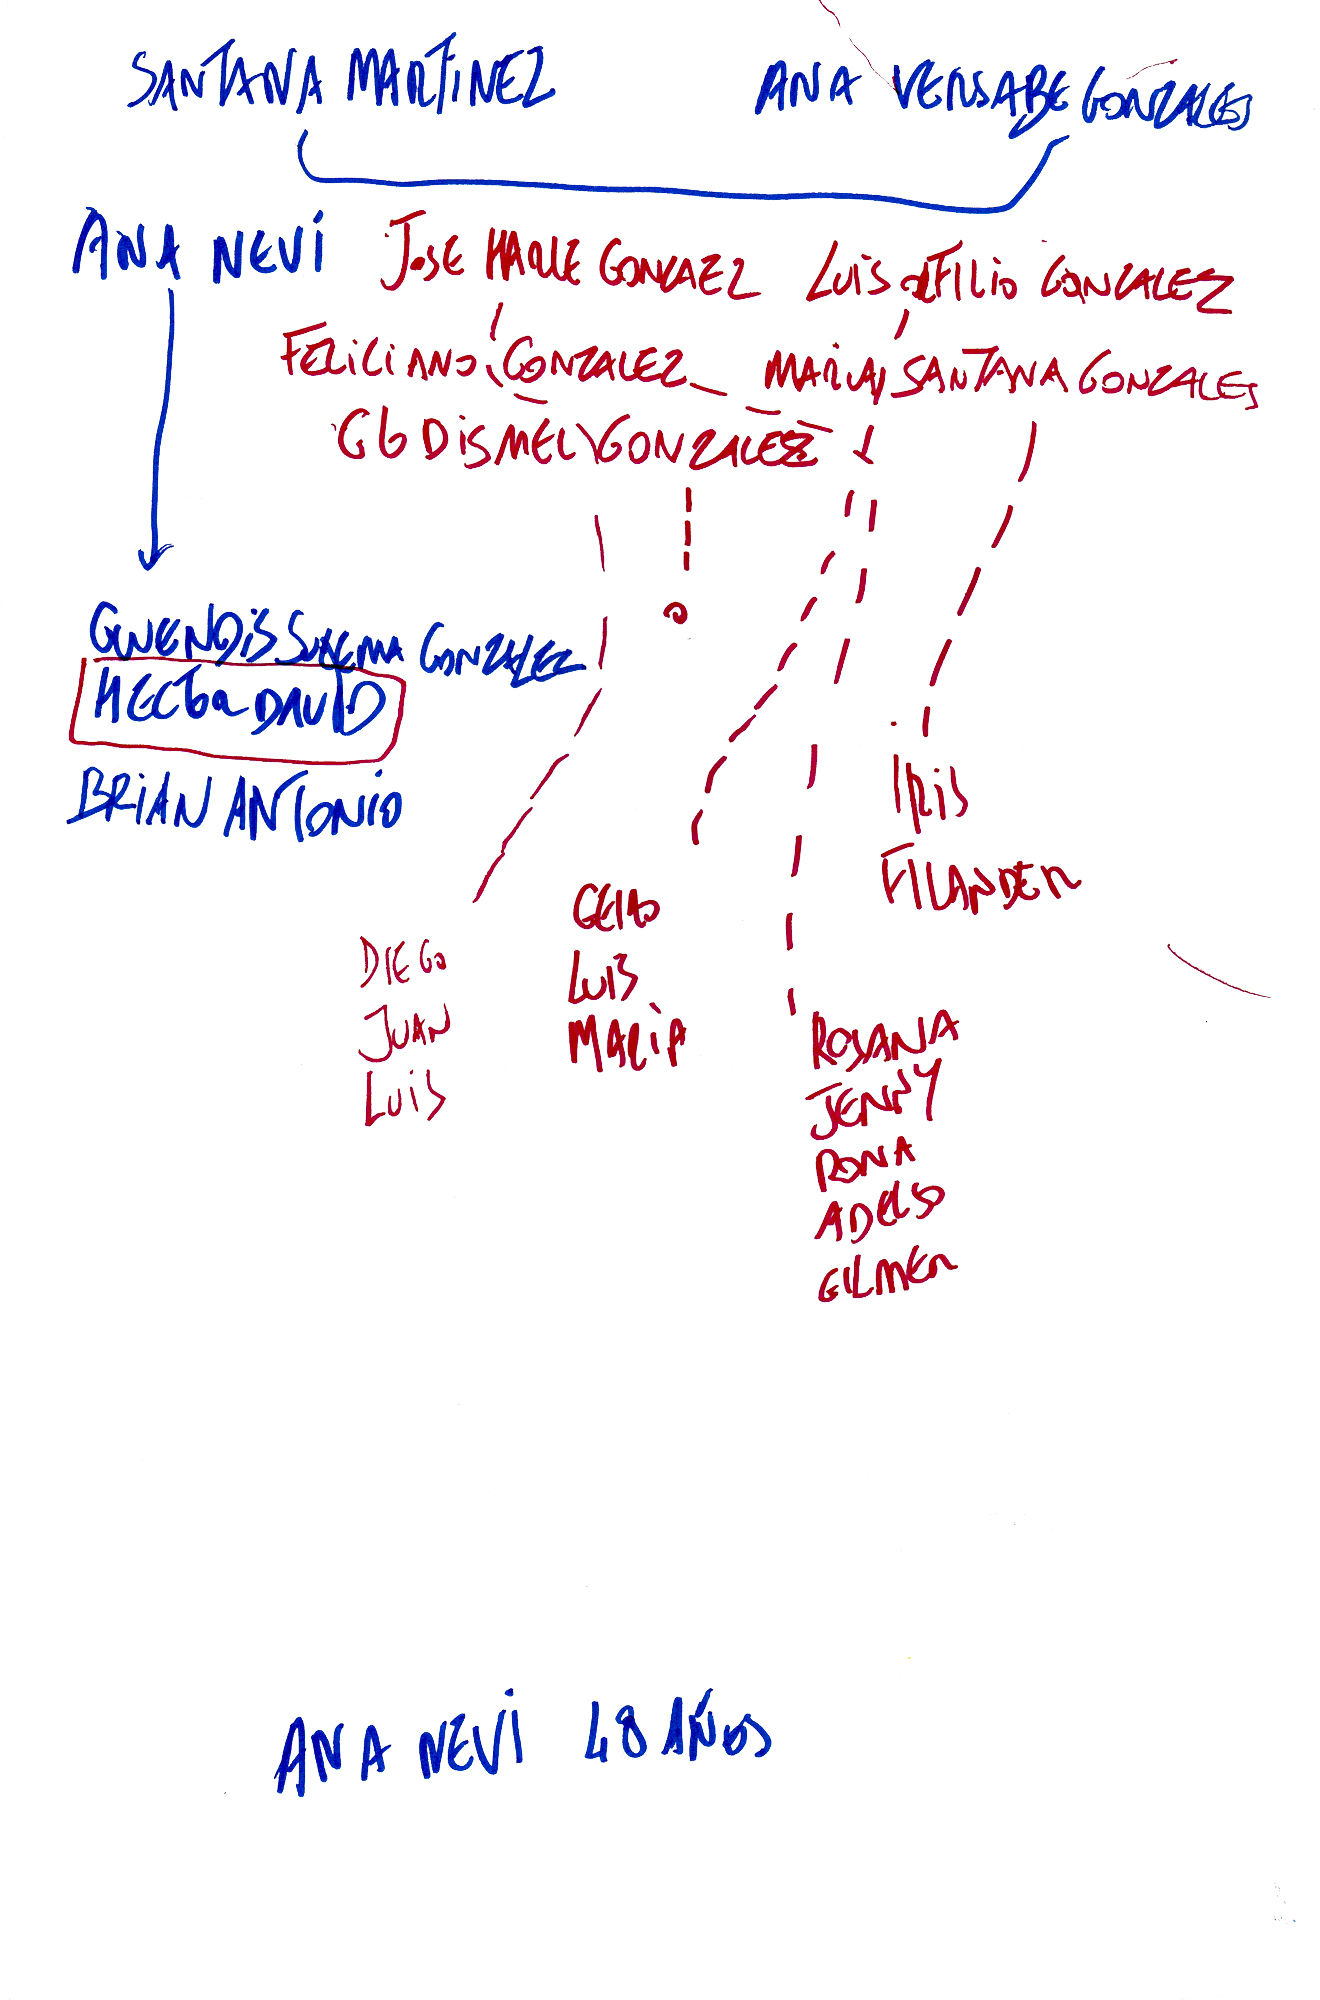 SANTANA MARTINEZ ANA VERSABE GONZALES
ANA NEVI JOSE GONZAEZ LUIS GONZALEZ
FELICIANO GONZALEZ MARIA SANTANA GONZALES
DISMEL GONZALEZ
GWENDIS SUYEMA GONZALEZ
HECTOR DAVID
BRIAN ANTONIO
IRIS
FILANDER
DIEGO
JUAN
LUIS
LUIS
MARIA
ROSANA
JENNY
RONA
ADELSO
GILMER
ANA NEVI 48 AÑOS